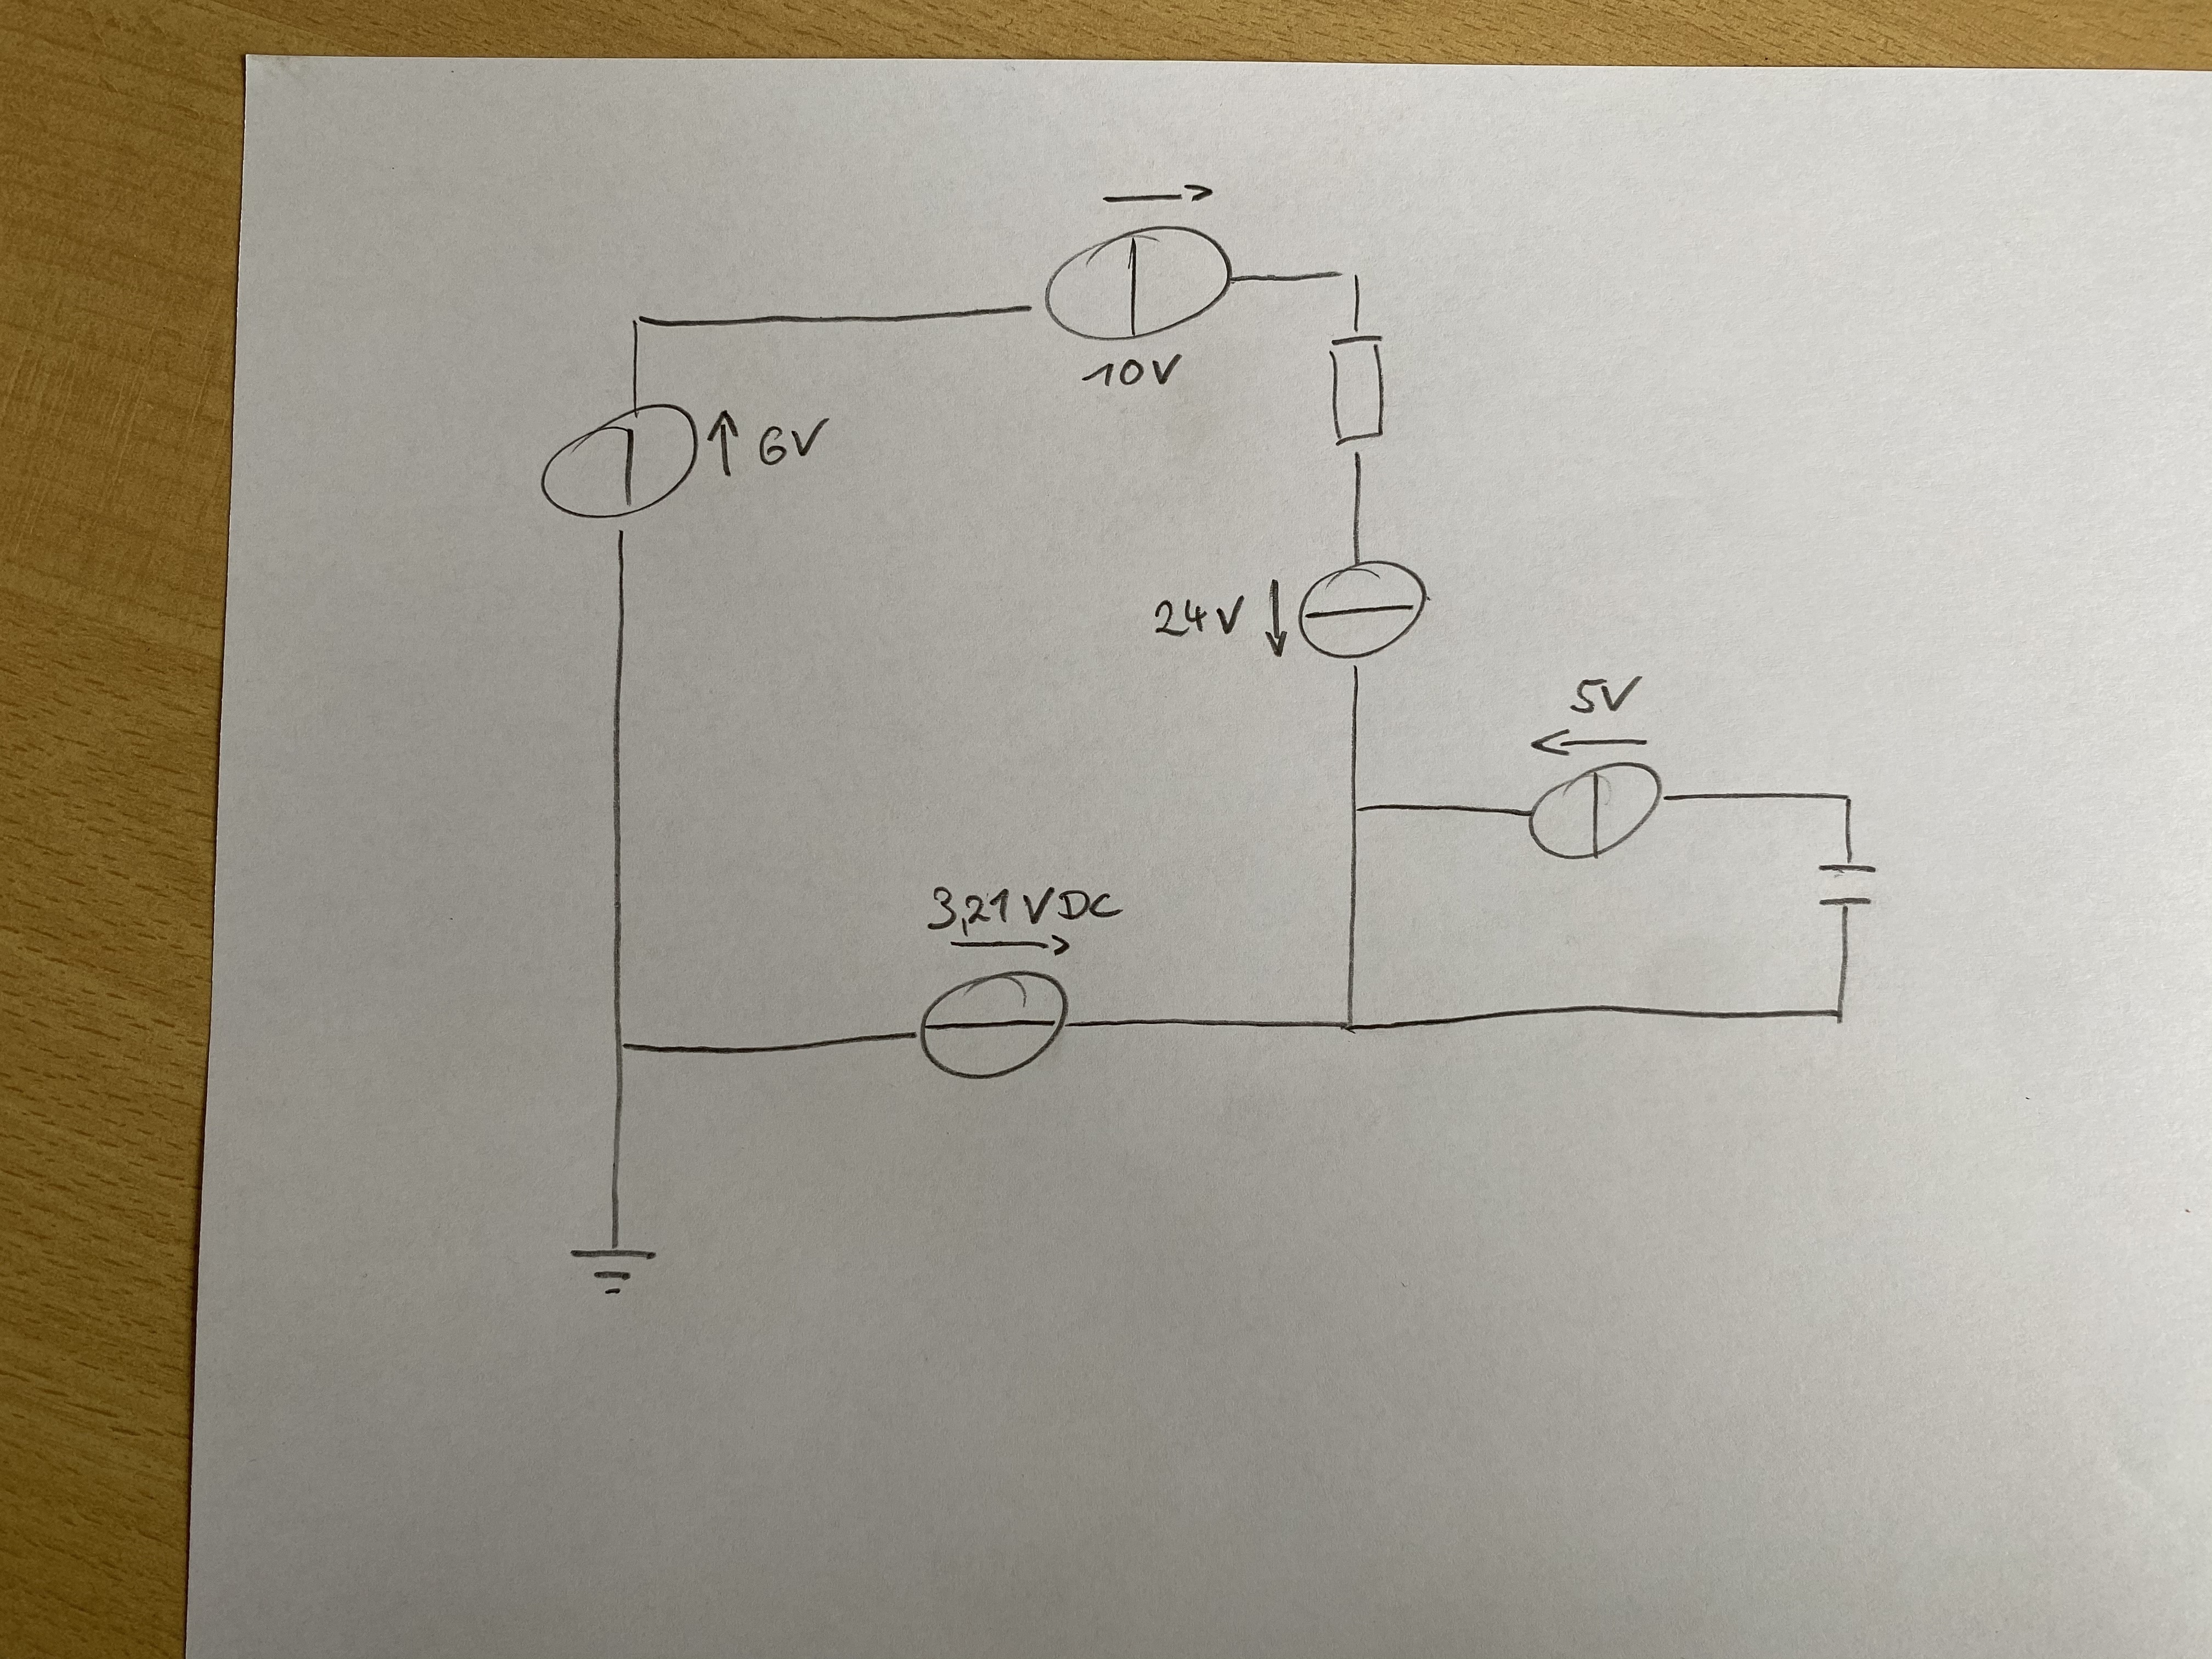 10V
6V
24V
5V
3,21VDC